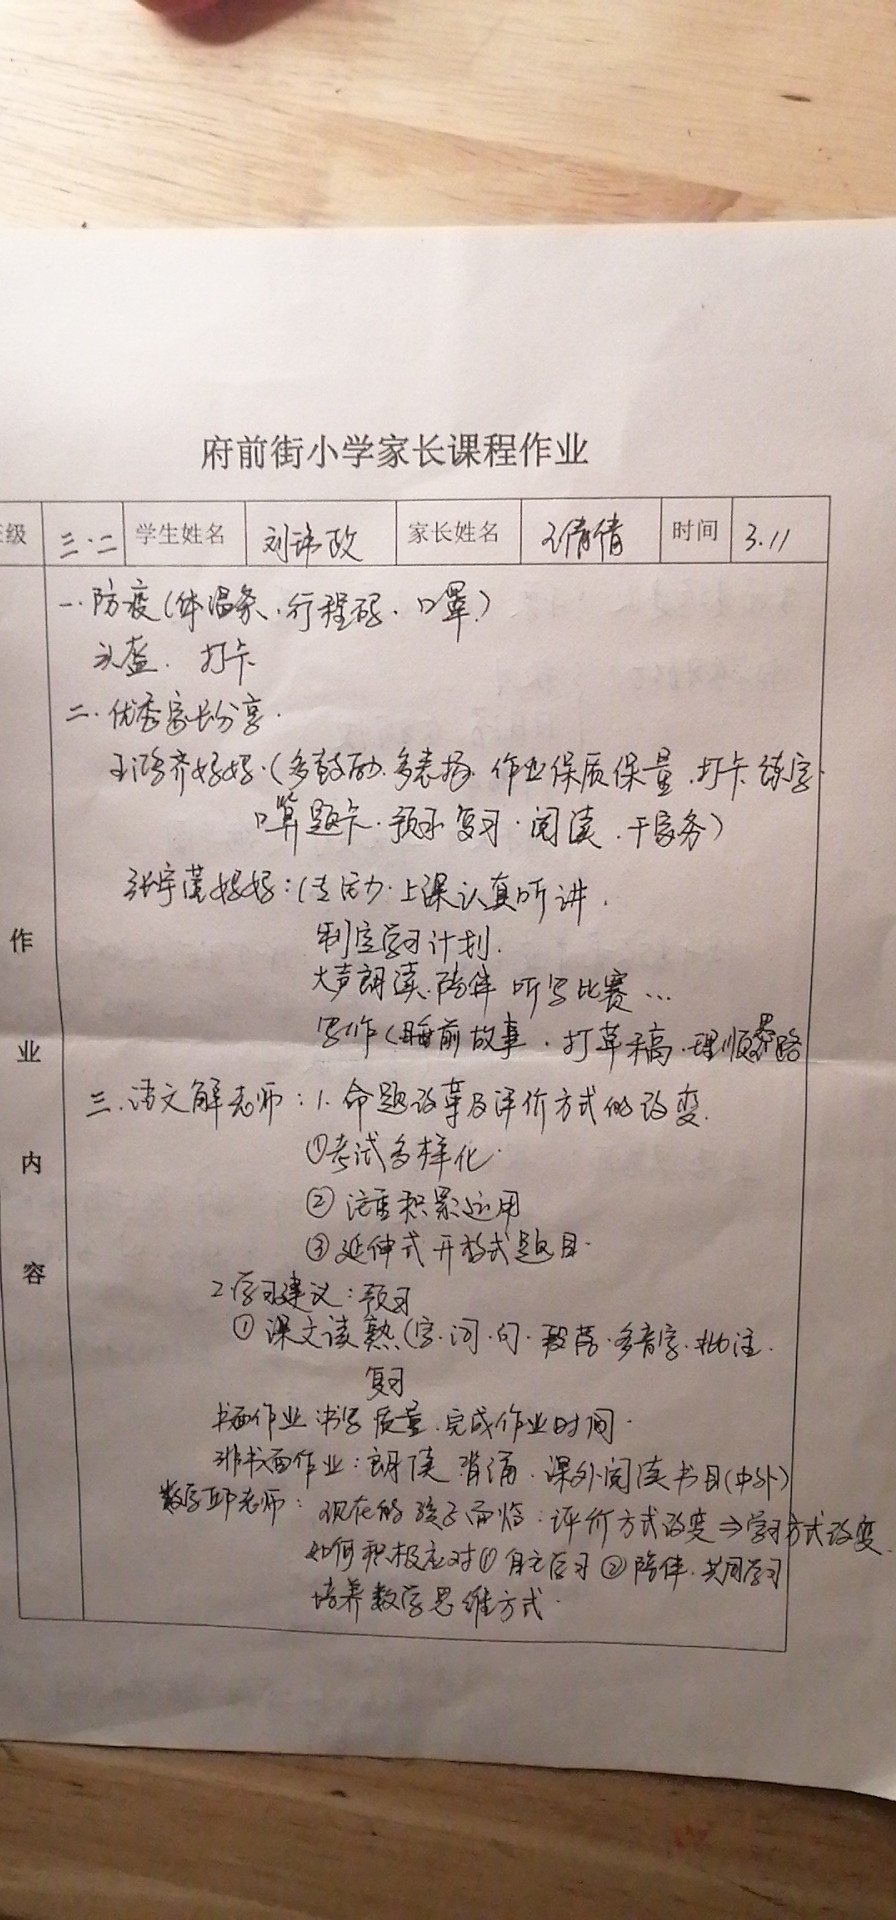 府前街小学家长课程作业
级 三.二 学生姓名 刘玮政 家长姓名 王倩倩 时间 3.11
作业内容
一.防疫(体温条、行程码、口罩)
头盔、打卡
二.优秀家长分享.
王鸿齐妈妈.(多鼓励、多表扬、作业保质保量、打卡练字.
口算题卡.预习复习.阅读、干家务)
张宇 妈妈:(主动.上课认真听讲.
制定学习计划.
大声朗读.陪伴 听写比赛…
写作(睡前故事、打草稿.理顺思路
三.语文解老师:1.命题改革及评价方式的改变.
①考试多样化.
②注重积累运用
③延伸式开放式题目.
2.学习建议:预习
①课文读熟(字.词.句.段落.多音字.批注.
复习
书面作业 书写质量.完成作业时间.
非书面作业:朗读 背诵.课外阅读书目(中外)
数学邱老师: 现在的孩子面临:评价方式改变⇒学习方式改变.
如何积极应对① 学习②陪伴.共同学习
培养数学思维方式.